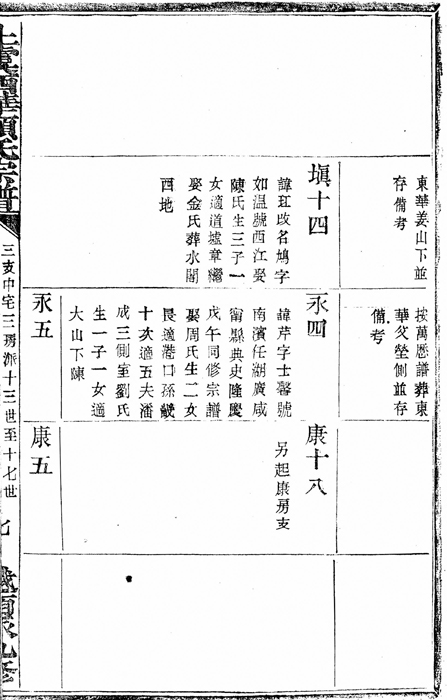 東華姜山下並
存備考
塡十四
諱玒改名鳩字
如温號西江娶
陳氏生三子一
女適道墟章繼
娶金氏葬水閣
西地
按萬厯譜葬東
華父塋側並存
備考
永四
諱芹字士馨號
南濱任湖廣咸
甯縣典史隆慶
戊午同修宗譜
娶周氏生二女
長適港口孫畿
十次適五夫潘
成三側室劉氏
生一子一女適
大山下陳
永五
康十八
另起康房支
康五
氏宗譜
三支中宅三房派十三世至十七世
七